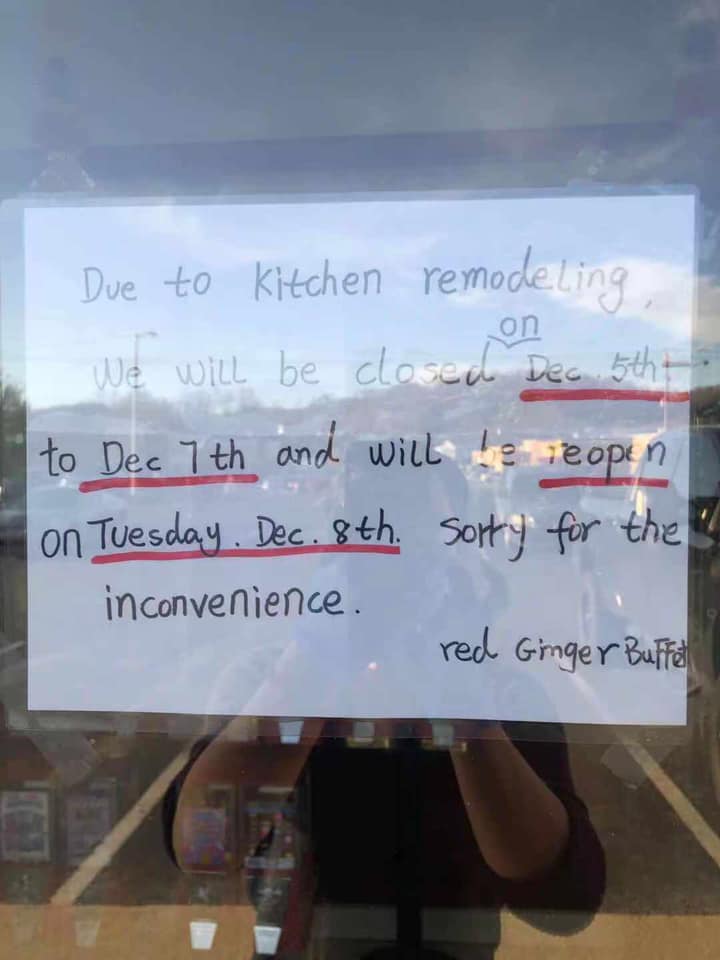 Due to kitchen remodeling,
on
We will be closed Dec. 5th-
to Dec 7th and will be reopen
on Tuesday. Dec. 8th. Sorry for the
inconvenience.
red Ginger Buffet